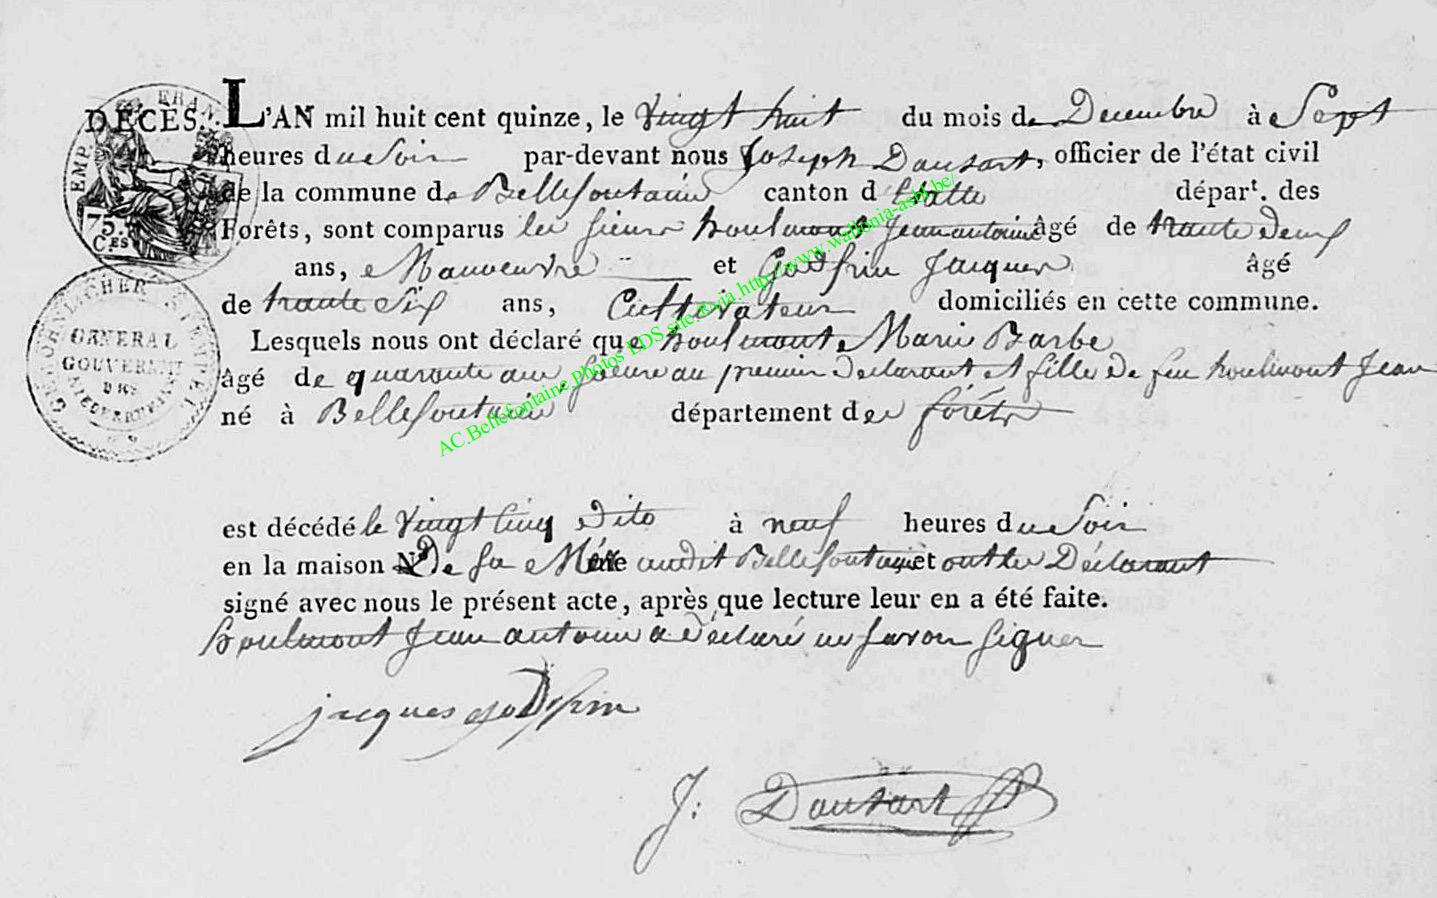 DÉCÈS. L'AN mil huit cent quinze, le vingt huit du mois de Decembre à Sept
heures du Soir par-devant nous Joseph Dausart, officier de l'état civil
de la commune de Bellefontaine canton d'Etalle départ. des
Forêts, sont comparus les sieurs houlmont Jean antoine âgé de trente deux
ans, Manoeuvre et Godfrin Jacques âgé
de trente Six ans, Cultivateur domiciliés en cette commune.
Lesquels nous ont déclaré que houlmont Marie Barbe
âgé de quarante ans Soeure au premier declarant et fille de feu houlmont Jean
né à Bellefontaine département des forêts
est décédé le vingt Cinq dito à neuf heures du Soir
en la maison N° De sa Mére audit Bellefontaine et ont les Déclarant
signé avec nous le présent acte, après que lecture leur en a été faite.
houlmont Jean antoine a déclaré ne savoir signer
jacques godfrin
J: Dausart
EMP. FRAN
75.
CES
GENERAL
GOUVERNMT
DES
STEMPEL
AC.Bellefontaine Photos EDS site & via http://www.wallonia-asbl.be/